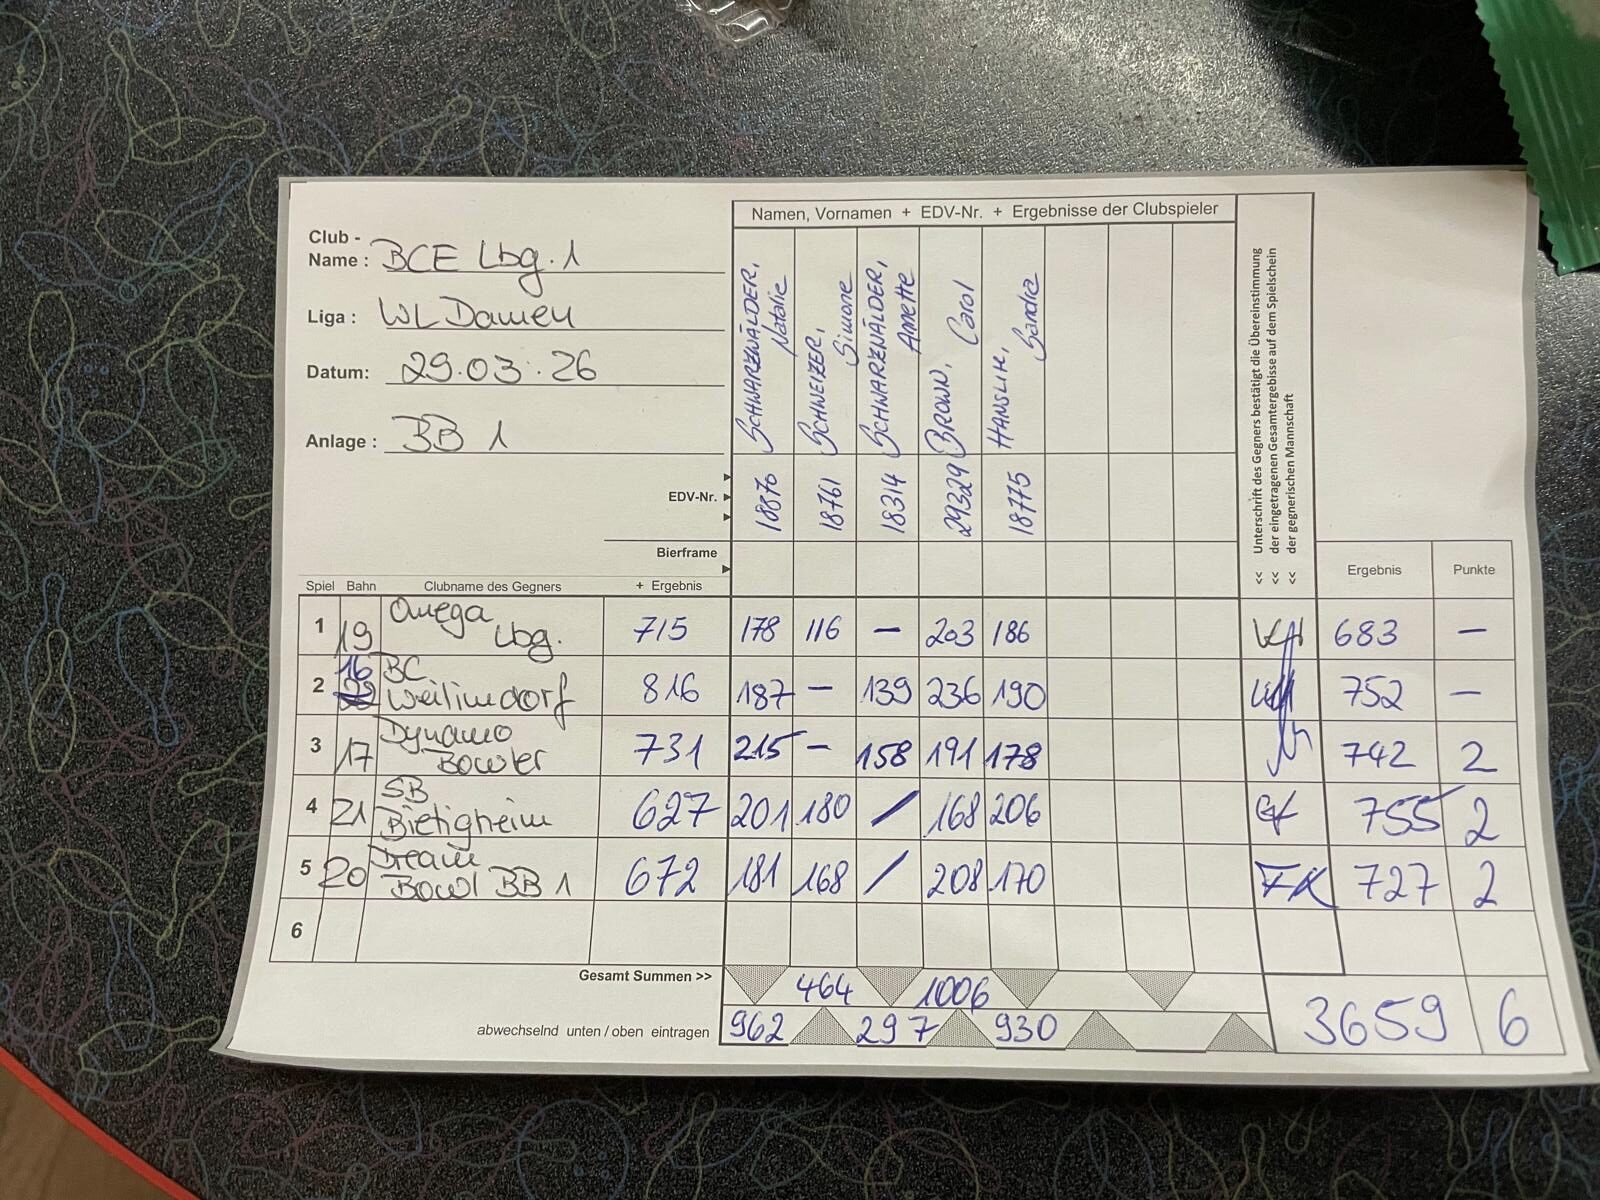 Namen, Vornamen + EDV-Nr. + Ergebnisse der Clubspieler
Club -
Name : BCE Lbg. 1
Liga : WL Damen
Datum: 29.03.26
Anlage : BB 1
SCHWARZWÄLDER, Natalie
SCHWEIZER, Simone
SCHWARZWÄLDER, Annette
BROWN, Carol
HANSLIK, Sandra
<< Unterschrift des Gegners bestätigt die Übereinstimmung
<< der eingetragenen Gesamtergebisse auf dem Spielschein
<< der gegnerischen Mannschaft
EDV-Nr. 18870 18761 18314 29329 18775
Bierframe
Ergebnis Punkte
Spiel Bahn Clubname des Gegners + Ergebnis
1 19 Omega Lbg. 715 178 116 – 203 186 683 –
2 16 BC Weilimdorf 816 187 – 139 236 190 752 –
3 17 Dynamo Bowler 731 215 – 158 191 178 742 2
4 21 SB Bietigheim 627 201 180 / 168 206 755 2
5 20 Dream Bowl BB 1 672 181 168 / 208 170 FK 727 2
6
Gesamt Summen >> 464 1006
abwechselnd unten / oben eintragen 962 297 930
3659 6